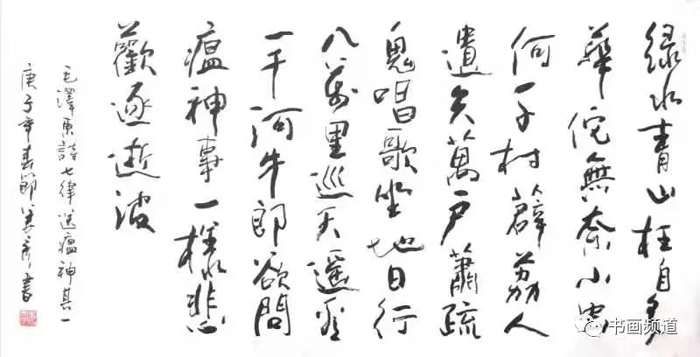 緑水青山枉自多
華佗無奈小虫
何千村薜荔人
遺矢萬户蕭疏
鬼唱歌坐地日行
八萬里巡天遥看
一千河牛郎欲問
瘟神事一樣悲
歡逐逝波
毛澤東詩七律送瘟神其一
庚子年春節書
书画频道